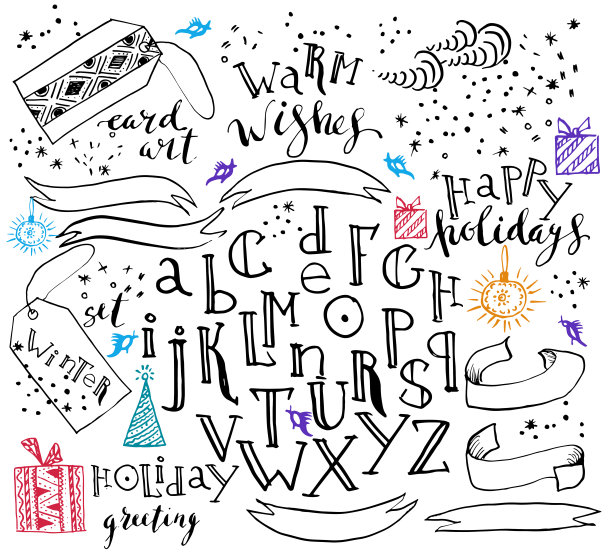 WaRM
Wishes
eard
art
Happy
holidays
set
WinTER
a b C d e F G H
i j K L M n O P q
R S T U
V W X Y Z
HOLiday
greeting